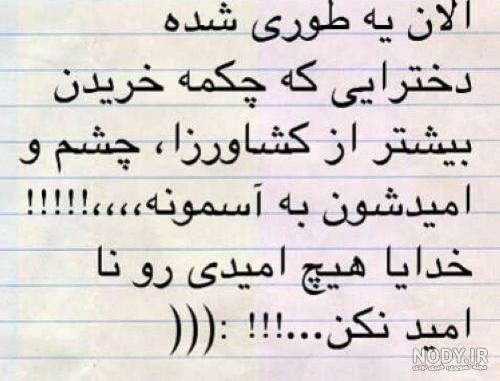 الان یه طوری شده
دخترایی که چکمه خریدن
بیشتر از کشاورزا، چشم و
امیدشون به آسمونه،،،،!!!!!
خدایا هیچ امیدی رو نا
امید نکن...!!! :(((
NODY.IR